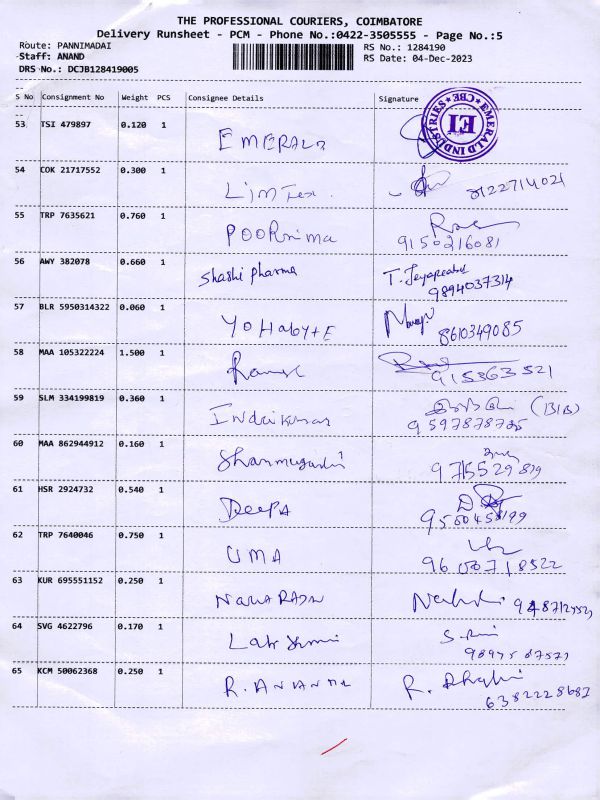 THE PROFESSIONAL COURIERS, COIMBATORE
Delivery Runsheet - PCM - Phone No.:0422-3505555 - Page No.:5
Route: PANNIMADAI RS No.: 1284190
Staff: ANAND RS Date: 04-Dec-2023
DRS No.: DCJB128419005
S No Consignment No Weight PCS Consignee Details Signature
53 TSI 479897 0.120 1 EMERALD EMERALD INDUSTRIES CBE EI
54 COK 21717552 0.300 1 LimTex. 8122714021
55 TRP 7635621 0.760 1 POORnima 9150216081
56 AWY 382078 0.660 1 Shashi pharma T. Jeyaprakash
9894037314
57 BLR 5950314322 0.060 1 8610349085
58 MAA 105322224 1.500 1 915363521
59 SLM 334199819 0.360 1 Indrikumar
60 MAA 862944912 0.160 1 9715529819
61 HSR 2924732 0.540 1 DeepA
62 TRP 7640046 0.750 1 UMA 9600718522
63 KUR 695551152 0.250 1
64 SVG 4622796 0.170 1 Lakshmi
65 KCM 50062368 0.250 1 R. ANANTH R.